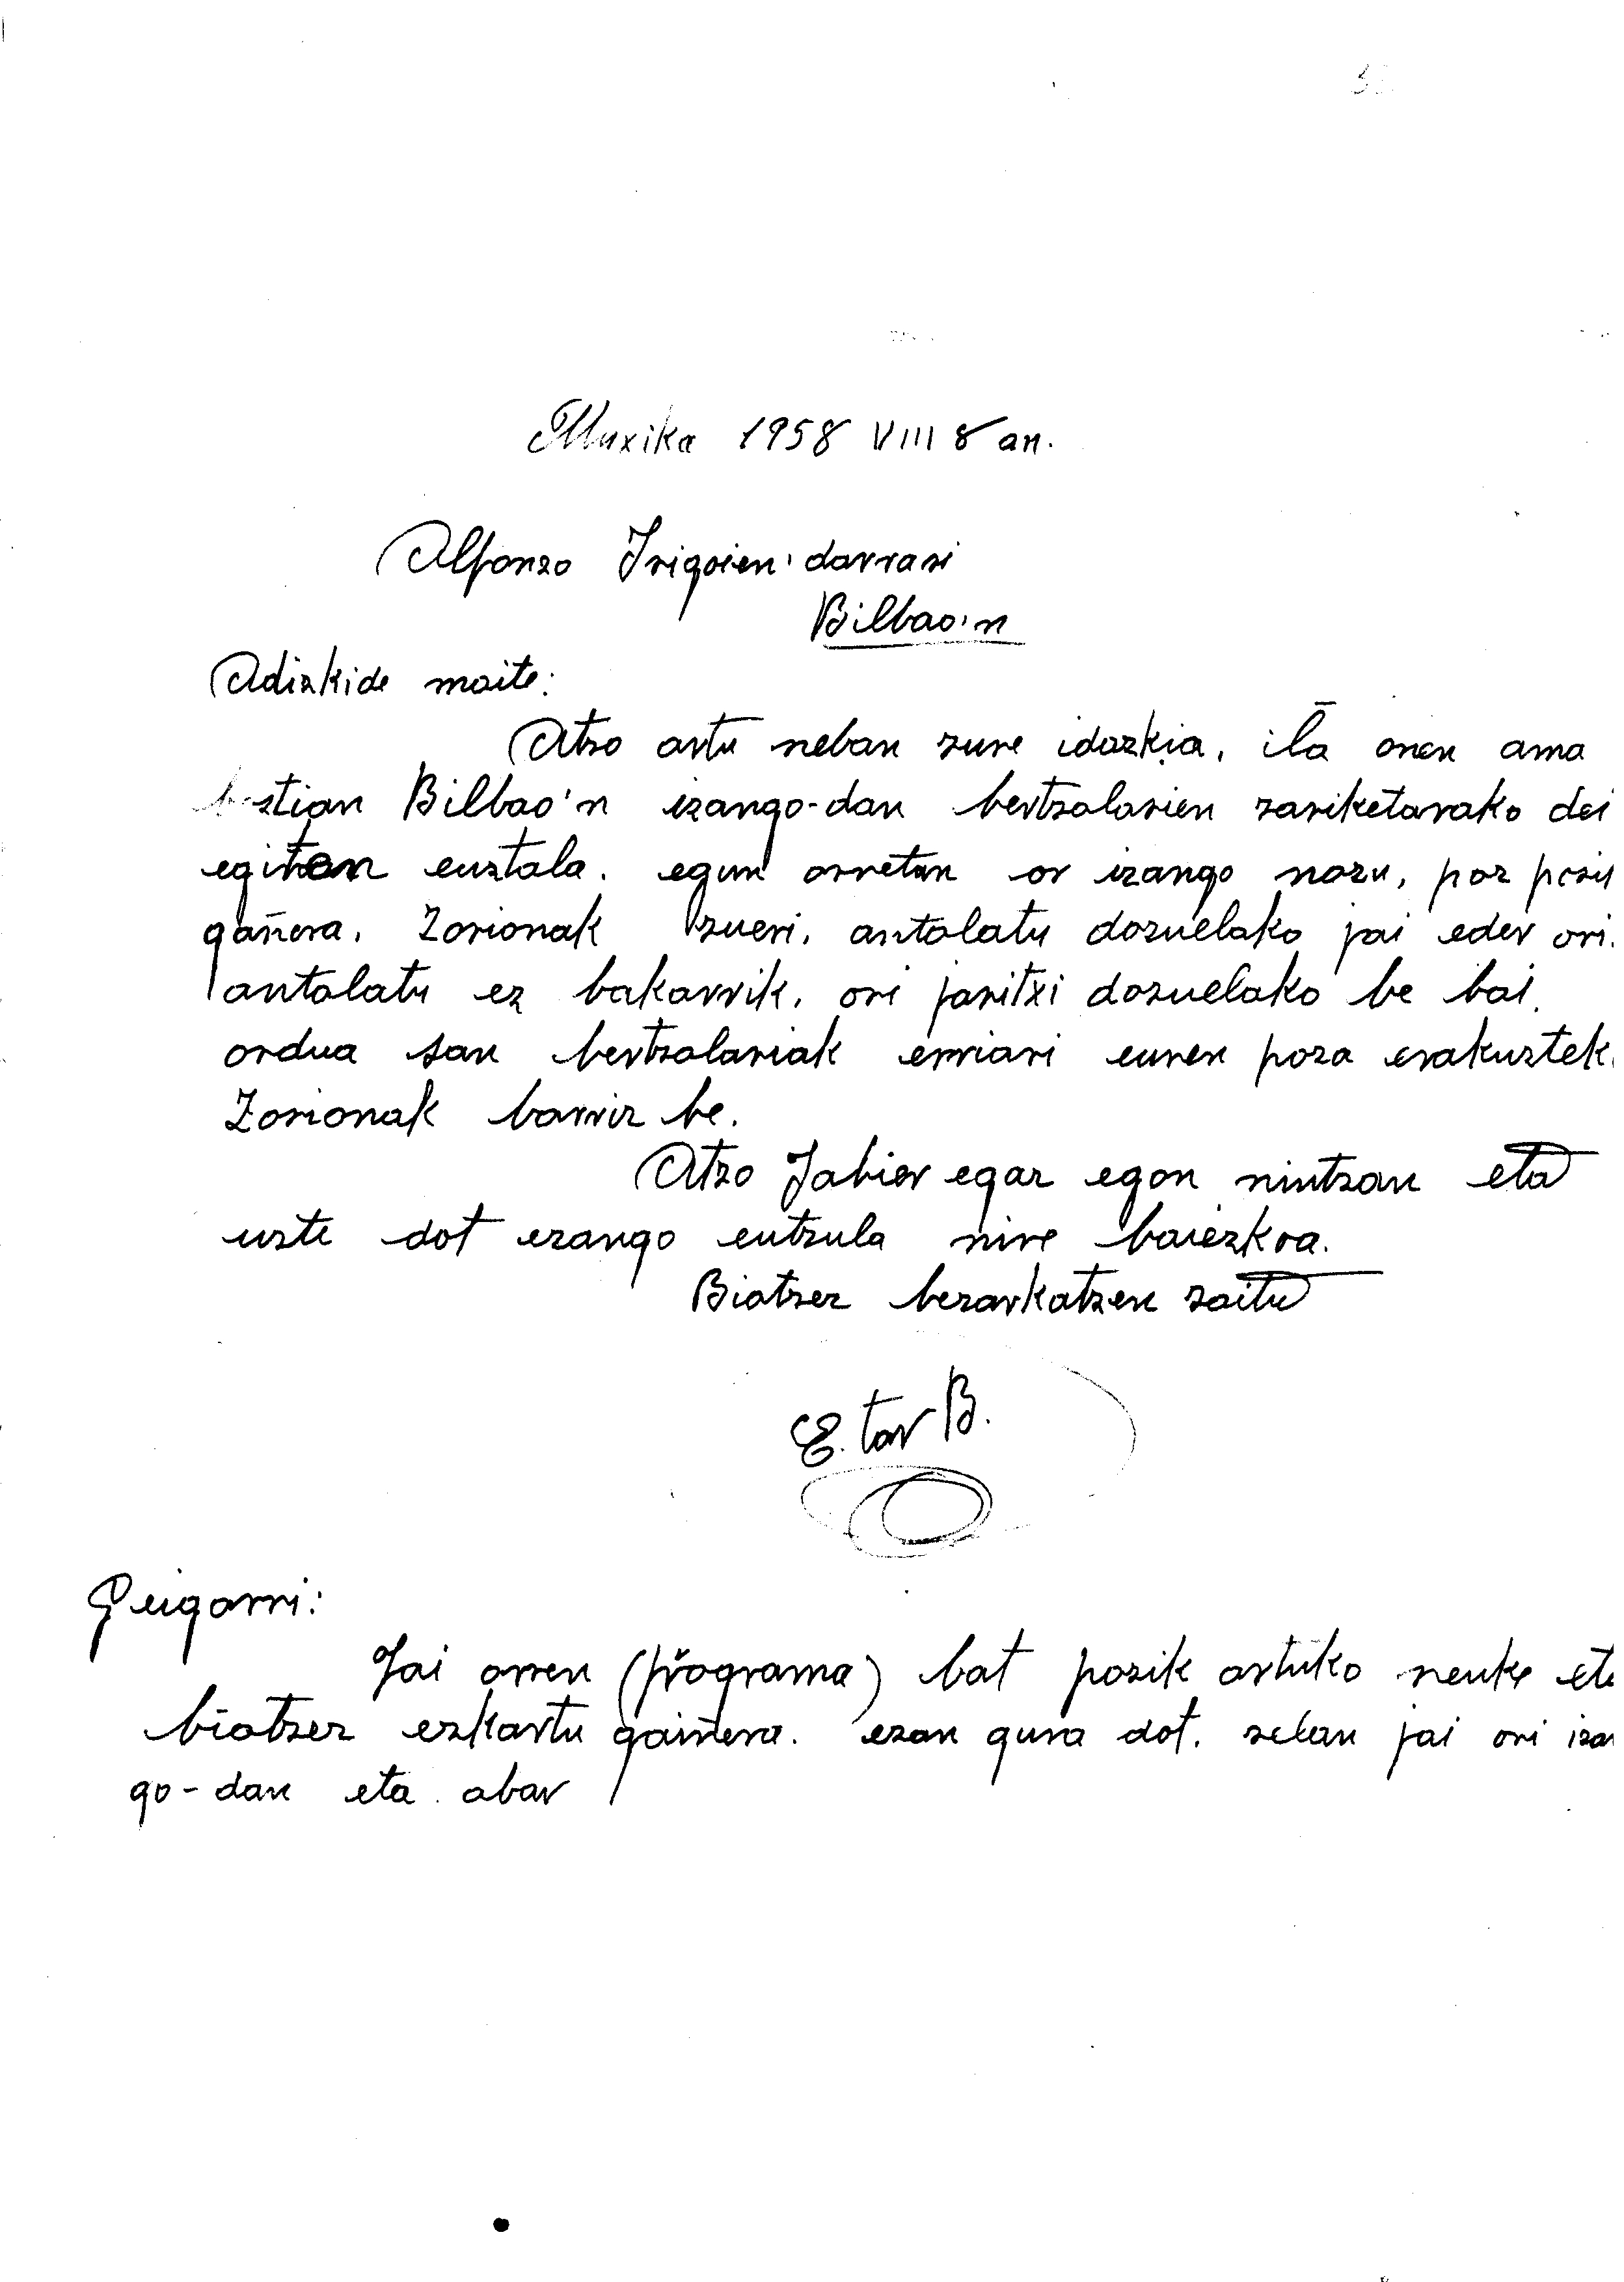 Muxika 1958 VIII 8 an.
Alfonzo Irigoien'darrari
Bilbao'n
Adizkide maite:
Atzo artu neban zure idazkia, ila onen ama
bostian Bilbao'n izango-dan bertzolarien zariketarako dei
egiten euztala. egun orretan or izango nozu, poz pozik
gañera. Zorionak zueri, antolatu dozuelako jai eder ori.
antolatu ez bakarrik, ori jaritxi dozuelako be bai.
ordua zan bertzolariak erriari euren poza erakuztek
Zorionak barriz be.
Atzo Jabier egaz egon nintzan eta
uzte dot ezango eutzula nire baiezkoa.
Biotzez bezarkatzen zaitu
E. tar B.
Geigarri:
Jai orren (programa) bat pozik artuko neuke eta
biotzez ezkartu gaiñera. ezan gura dot. zelan jai ori izan
go-dan eta abar